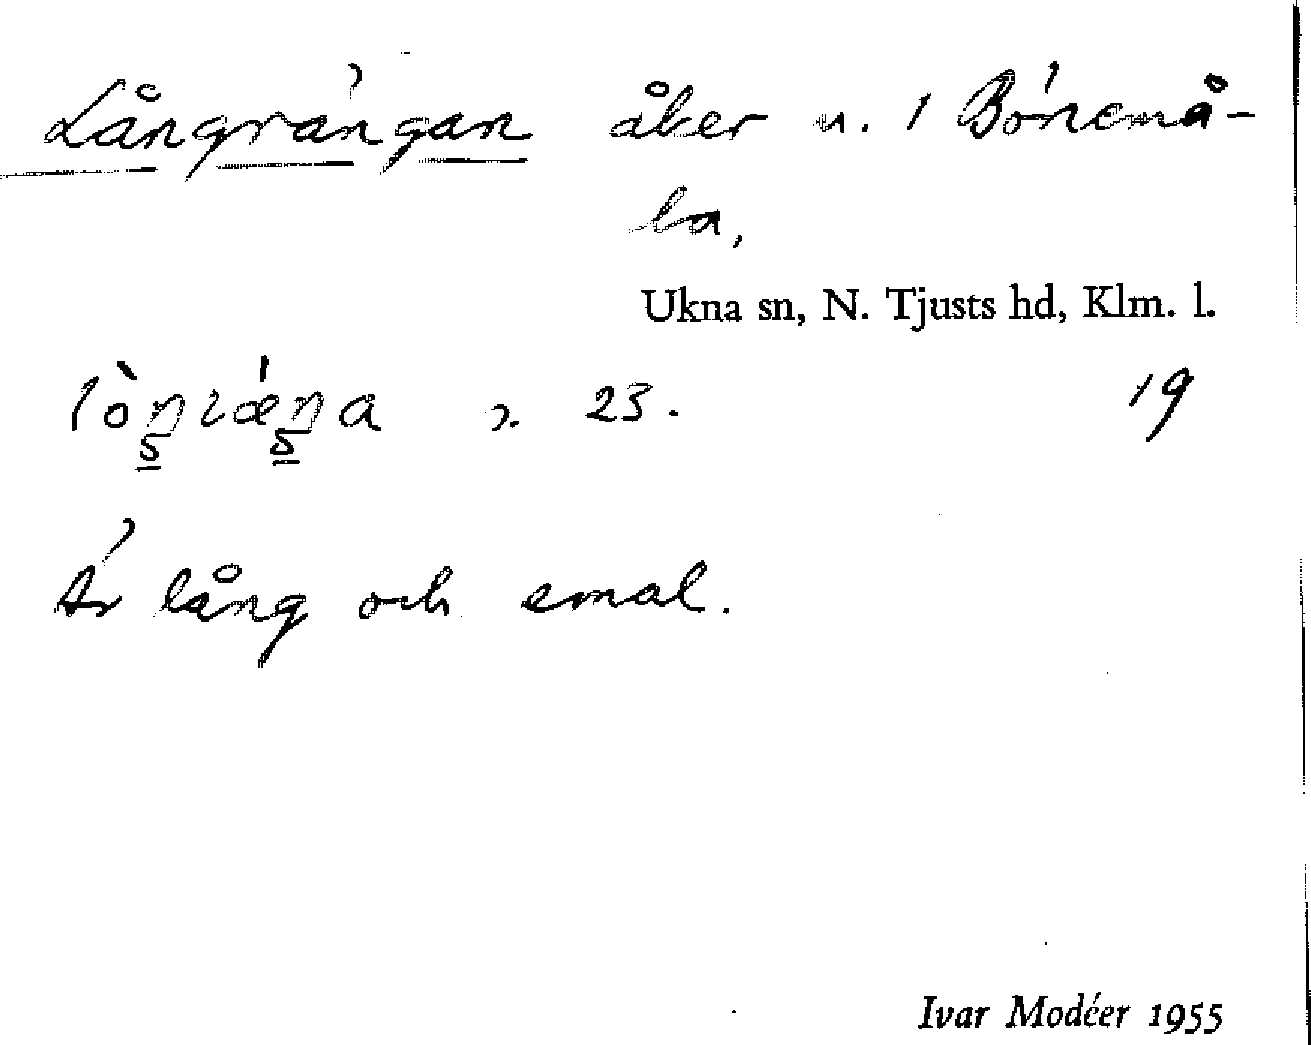 Långrängan åker u. 1 Bönemå-
la,
Ukna sn, N. Tjusts hd, Klm. l.
23. 19
Är lång och smal.
Ivar Modéer 1955